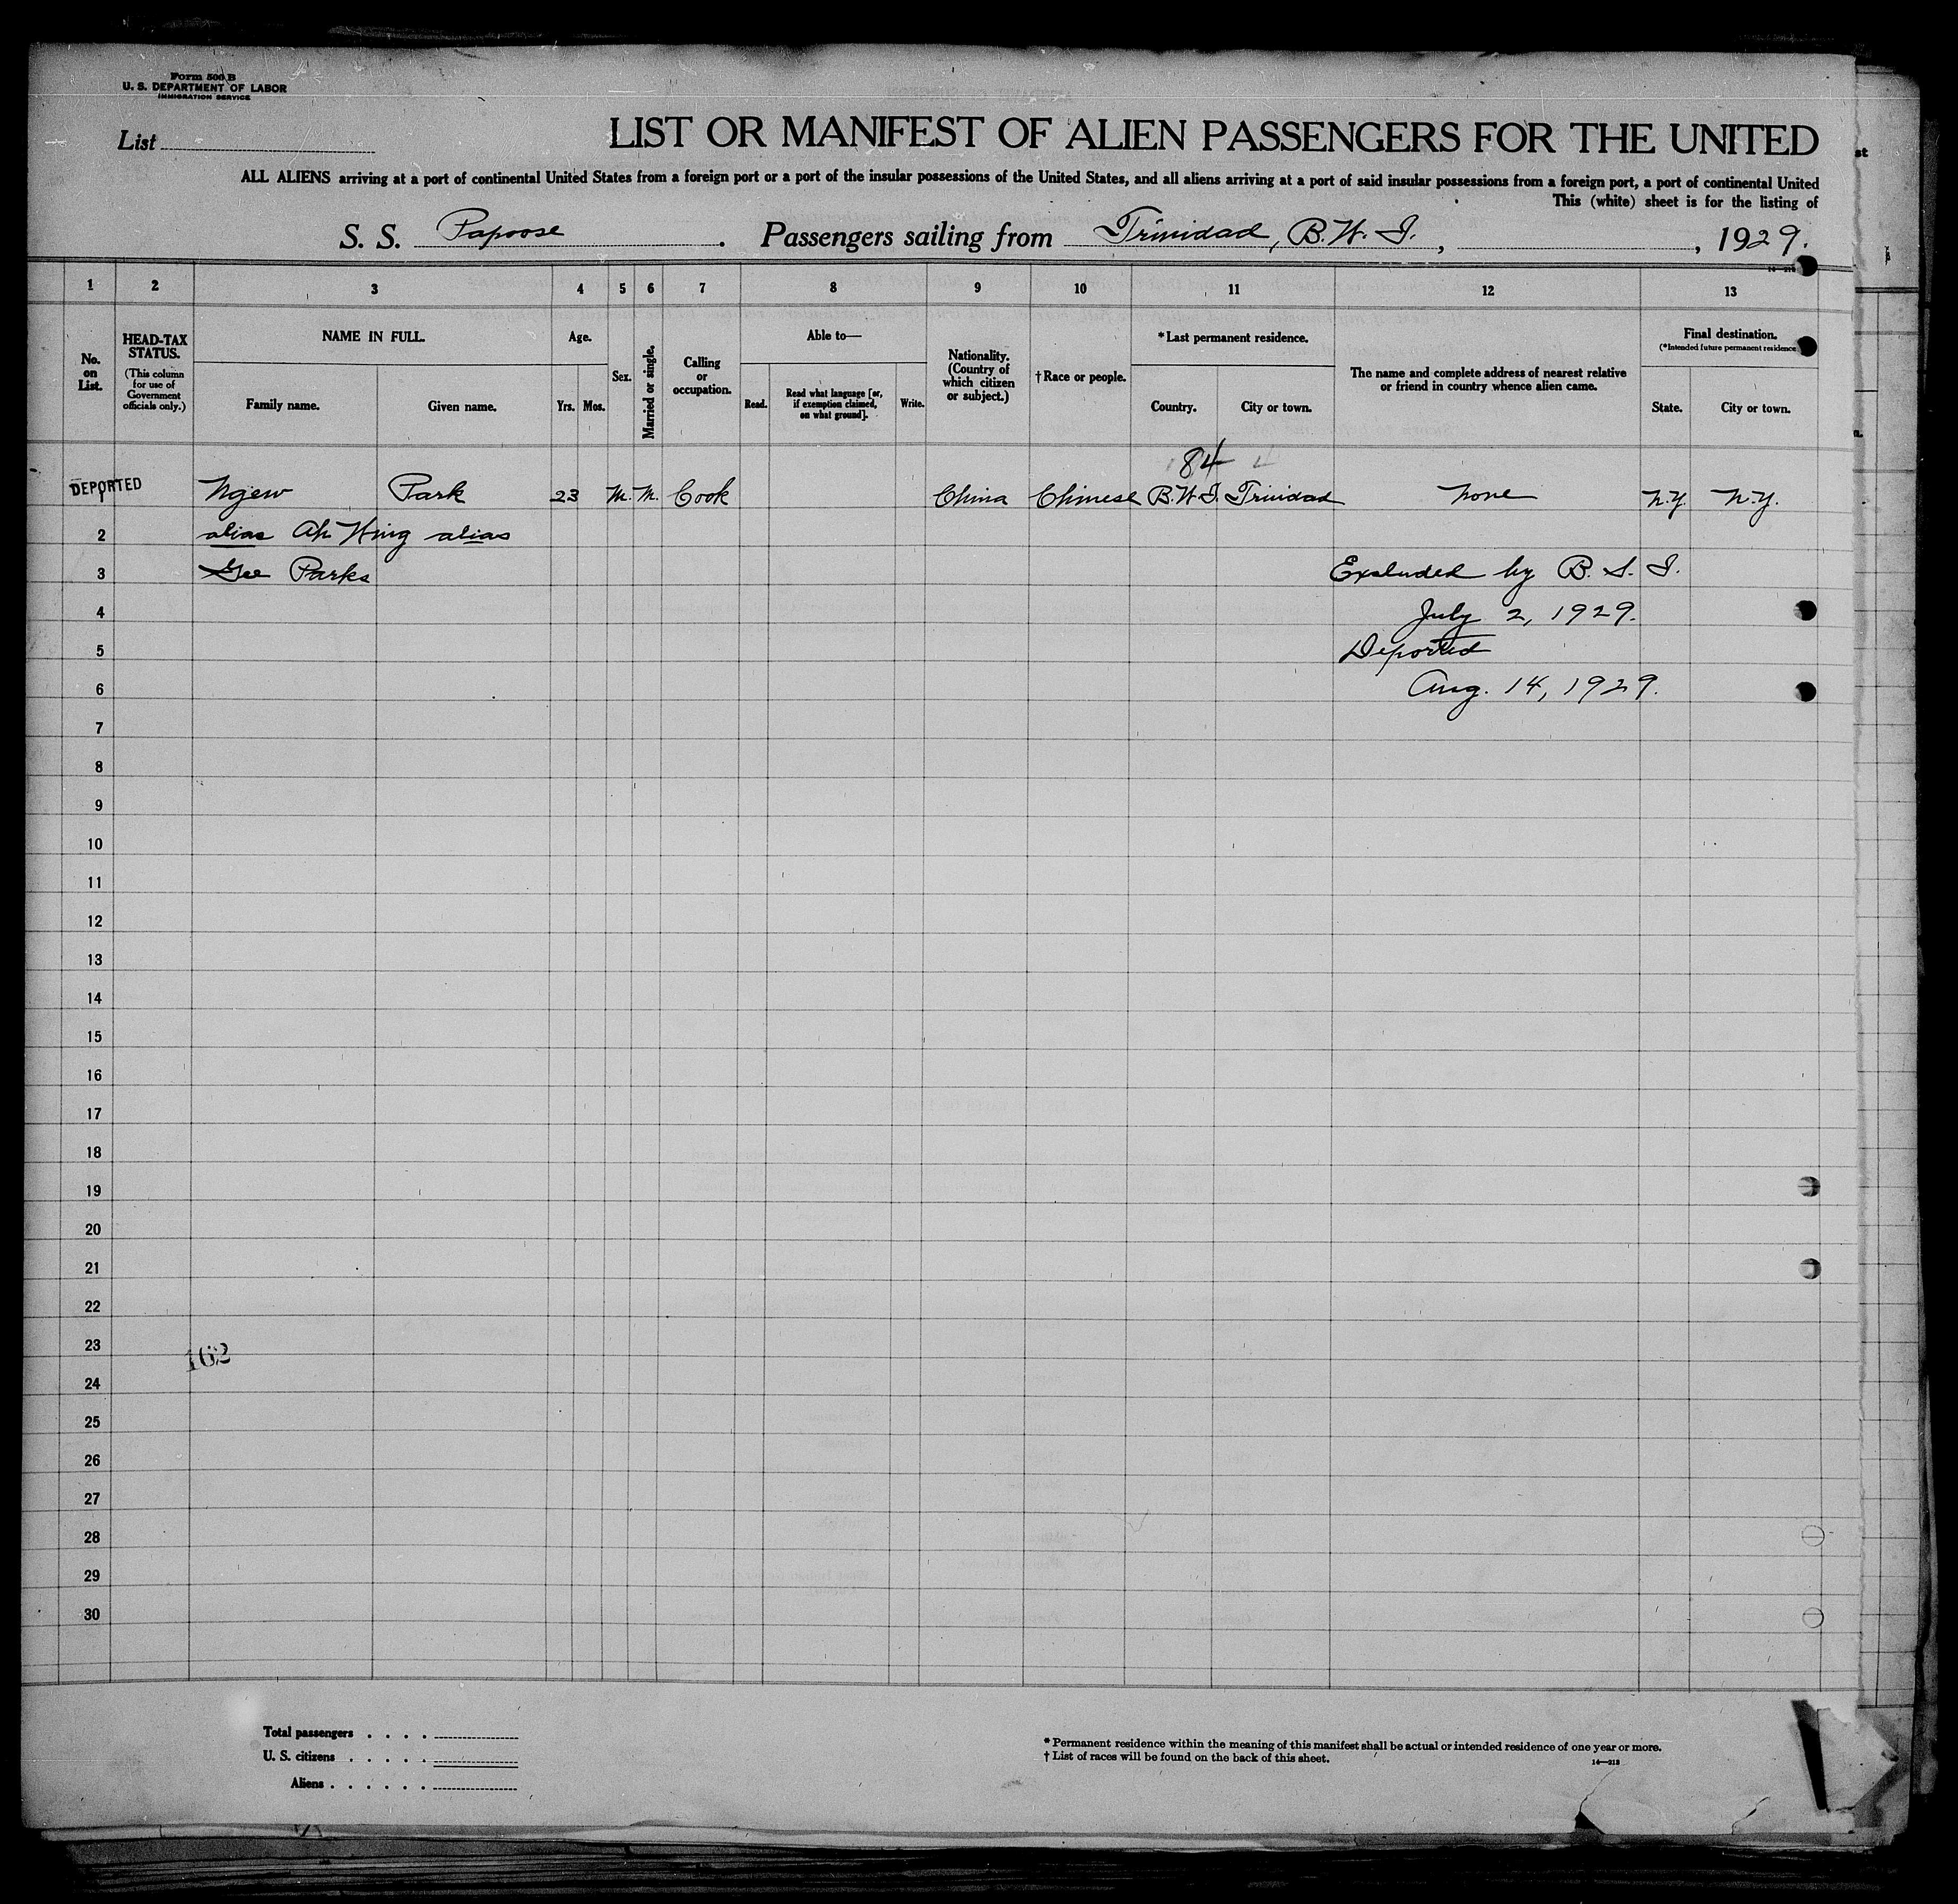 Form 500 B
U. S. DEPARTMENT OF LABOR
IMMIGRATION SERVICE
List
LIST OR MANIFEST OF ALIEN PASSENGERS FOR THE UNITED
ALL ALIENS arriving at a port of continental United States from a foreign port or a port of the insular possessions of the United States, and all aliens arriving at a port of said insular possessions from a foreign port, a port of continental United
This (white) sheet is for the listing of
S. S. Papoose. Passengers sailing from Trinidad, B.W.I., , 1929.
1 2 3 4 5 6 7 8 9 10 11 12 13
No. on List.
HEAD-TAX STATUS.
(This column for use of Government officials only.)
NAME IN FULL.
Family name. Given name.
Age.
Yrs. Mos.
Sex.
Married or single.
Calling or occupation.
Able to—
Read. Read what language [or, if exemption claimed, on what ground]. Write.
Nationality. (Country of which citizen or subject.)
† Race or people.
*Last permanent residence.
Country. City or town.
The name and complete address of nearest relative or friend in country whence alien came.
Final destination.
(*Intended future permanent residence
State. City or town.
84 4
DEPORTED 1 Ngew Park 23 M. M. Cook China Chinese B.W.I. Trinidad None N.Y. N.Y.
2 alias Ah Hing alias
3 Gee Parks Excluded by B. S. I.
4 July 2, 1929.
5 Deported
6 Aug. 14, 1929.
7
8
9
10
11
12
13
14
15
16
17
18
19
20
21
22
23
162
24
25
26
27
28
29
30
Total passengers
U. S. citizens
Aliens
* Permanent residence within the meaning of this manifest shall be actual or intended residence of one year or more.
† List of races will be found on the back of this sheet.
14—218